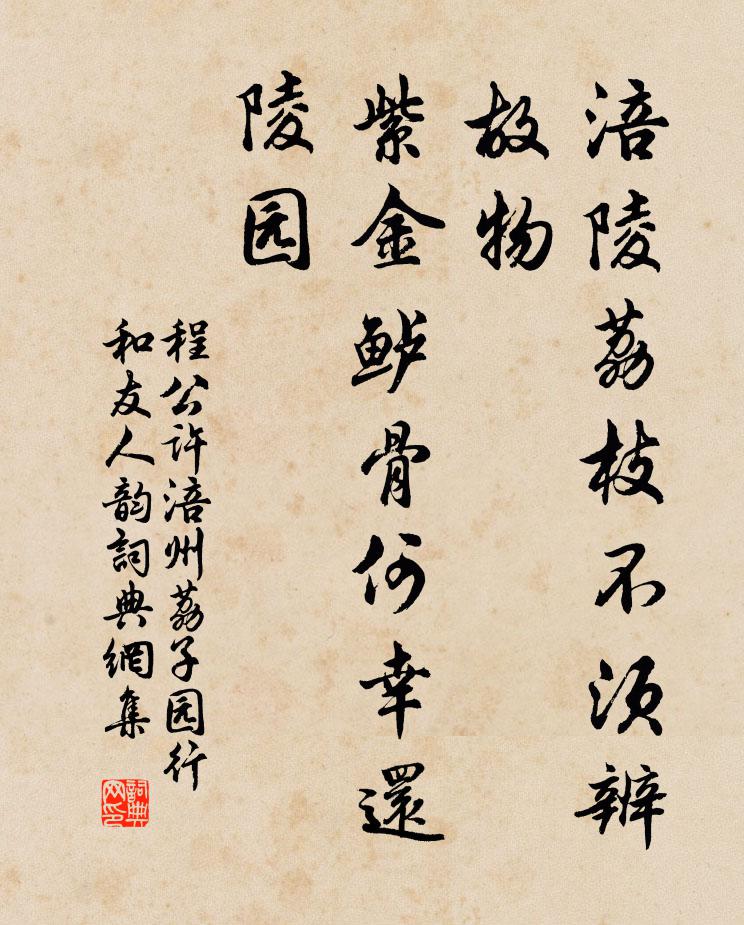 涪陵荔枝不须辨
故物
紫金鲈骨何幸還
陵园
程公许涪州荔子园行
和友人韵詞典網集
詞典网印